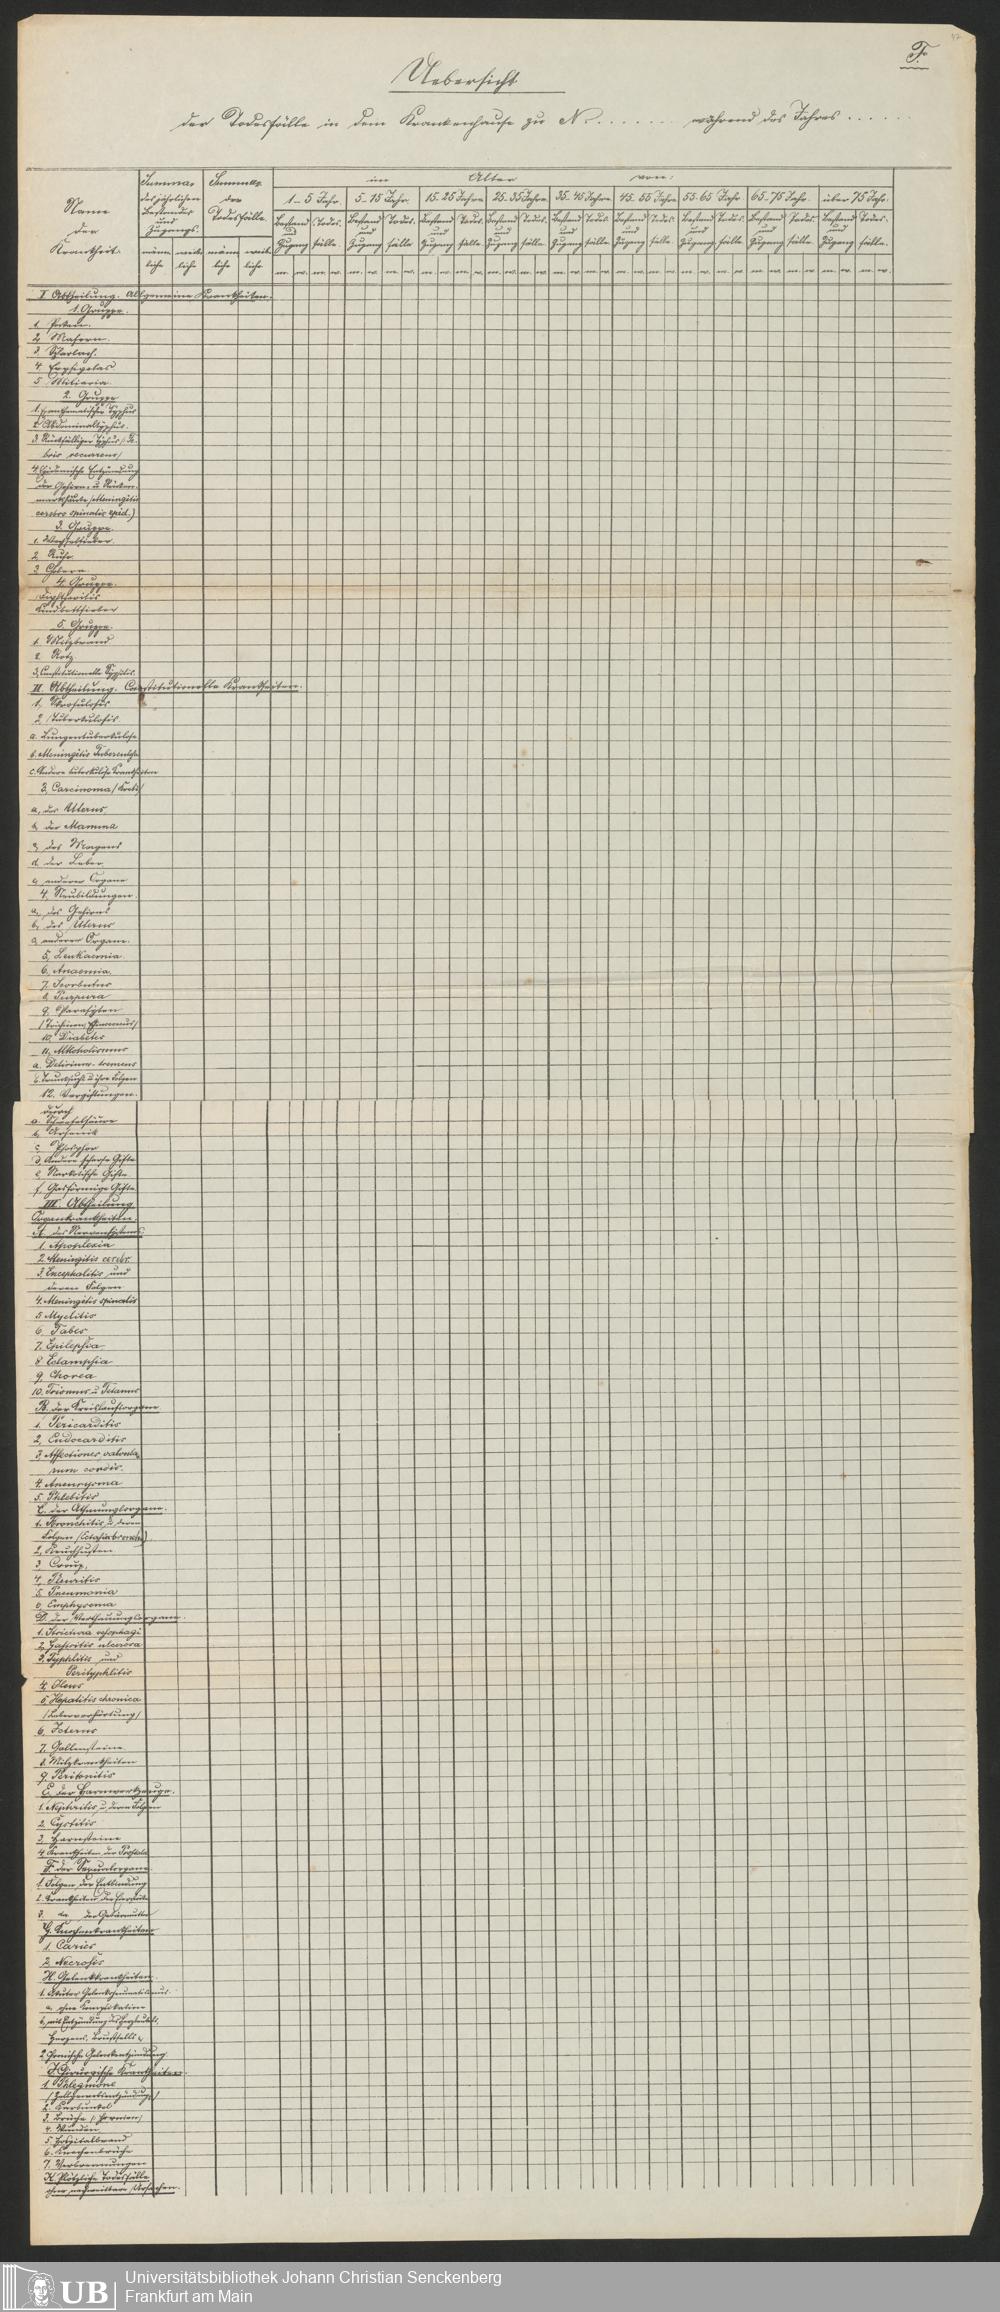 F.
Uebersicht
der Todesfälle in dem Krankenhause zu N. . . . . . . . während des Jahres . . . . . .
Name
der
Krankheit.
Summa
des jährlichen
Bestandes
und
Zugangs.
männ- weib-
liche liche
Summa
der
Todesfälle.
männ- weib-
liche liche
im Alter von:
1-5 Jahr. 5-15 Jahr. 15-25 Jahren 25-35 Jahren 35-45 Jahren 45-55 Jahren 55-65 Jahr 65-75 Jahr. über 75 Jahr.
Bestand Todes- Bestand Todes- Bestand Todes- Bestand Todes- Bestand Todes- Bestand Todes- Bestand Todes- Bestand Todes- Bestand Todes-
und und und und und und und und und
Zugang fälle. Zugang fälle Zugang fälle Zugang fälle. Zugang fälle. Zugang fälle Zugang fälle. Zugang fälle. Zugang fälle.
m. w. m. w. m. w. m. w. m. w. m. w. m. w. m. w. m. w. m. w. m. w. m. w. m. w. m. w. m. w. m. w. m. w. m. w.
I Abtheilung. Allgemeine Krankheiten.
1. Gruppe.
1. Pocken.
2. Masern.
3. Scharlach.
4. Erysipelas
5. Miliaria.
2. Gruppe
1. Exanthematischer Typhus
2. Abdominaltyphus.
3. Rückfälliger Typhus (Fe-
bris recurrens)
4. Epidemische Entzündung
der Gehirn- u. Rücken-
markshäute (Meningitis
cerebro spinalis epid.)
3. Gruppe.
1. Wechselfieber.
2. Ruhr.
3. Cholera.
4. Gruppe.
Diphtheritis
Kindbettfieber
5. Gruppe.
1. Milzbrand
2. Rotz
3. Constitutionelle Syphilis.
II. Abtheilung. Constitutionelle Krankheiten.
1. Skrofulosis
2. Tuberkulosis
a. Lungentuberkulose
b. Meningitis tuberculosa
c. Andere tuberkulöse Krankheiten
3. Carcinoma (Krebs)
a, des Uterus,
b, der Mamma
c, des Magens
d. der Leber,
e, anderer Organe
4. Neubildungen.
a, des Gehirns
b, des Uterus
c, anderer Organe.
5, Leukaemia.
6. Anaemia.
7. Scorbutus
8. Purpura
9. Parasyten
(Trichinen, Echinococcus)
10. Diabetes
11. Alkoholismus
a. Delirium tremens
b. Trunksucht u. ihre Folgen
12. Vergiftungen.
durch
a. Schwefelsäure
b, Arsenik
c, Phosphor
d. Andere scharfe Gifte
e, Narkotische Gifte
f. Gasförmige Gifte
III. Abtheilung.
Organkrankheiten.
A. des Nervensystems.
1. Apoplexia
2. Meningitis cerebr.
3. Encephalitis und
deren Folgen
4. Meningitis spinalis
5. Myelitis
6. Tabes
7. Epilepsia
8. Eclampsia
9. Chorea
10. Trismus u. Tetanus
B. der Kreislauforgane
1. Pericarditis
2, Endocarditis
3. Affectiones valvula-
rum cordis.
4. Aneurysma
5. Phlebitis
C. der Athmungsorgane.
1. Bronchitis u. deren
Folgen (Ectasia bronch.)
2, Keuchhusten
3, Croup,
4, Pleuritis
5. Pneumonia
6, Emphysema
D. der Verdauungsorgane.
1. Strictura oesophagi
2. Gastritis ulcerosa
3. Typhlitis und
Perityphlitis
4. Ileus
5. Hepatitis chronica
(Leberverhärtung)
6. Icterus
7. Gallensteine
8. Milzkrankheiten
9. Peritonitis
E, der Harnwerkzeuge.
1. Nephritis u. deren Folgen
2. Cystitis
3, Harnsteine
4. Krankheiten der Prostata
F. der Sexualorgane.
1. Folgen der Entbindung
2. Krankheiten der Eierstöcke
3. do der Gebärmutter
G. Knochenkrankheiten
1. Caries
2. Necrosis
H. Gelenkkrankheiten.
1. Akuter Gelenkrheumatismus.
a. ohne Komplikation
b, mit Entzündung des Herzbeutels,
Herzens, Brustfells
2, Chronische Gelenkentzündung.
J. Chirurgische Krankheiten.
1. Phlegmone
(Zellgewebsentzündung)
2. Karbunkel
3. Brüche (Hernien)
4. Wunden
5. Hospitalbrand
6. Knochenbrüche
7. Verbrennungen
K. Plötzliche Todesfälle
ohne nachweisbare Ursachen.
UB
Universitätsbibliothek Johann Christian Senckenberg
Frankfurt am Main